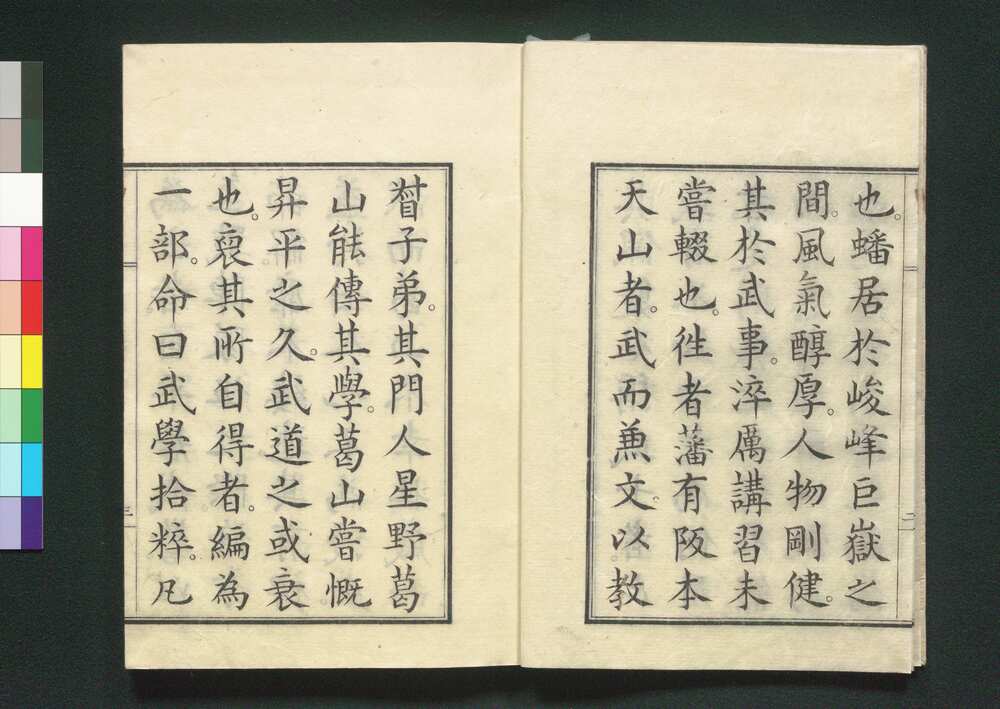 也。蟠居於峻峰巨嶽之
間。風氣醇厚。人物剛健。
其於武事。淬厲講習未
嘗輟也。徃者藩有阪本
天山者。武而兼文。以教
二
督子弟。其門人星野葛
山能傳其學。葛山嘗慨
昇平之久。武道之或衰
也。裒其所自得者。編為
一部。命曰武學拾粹。凡
三